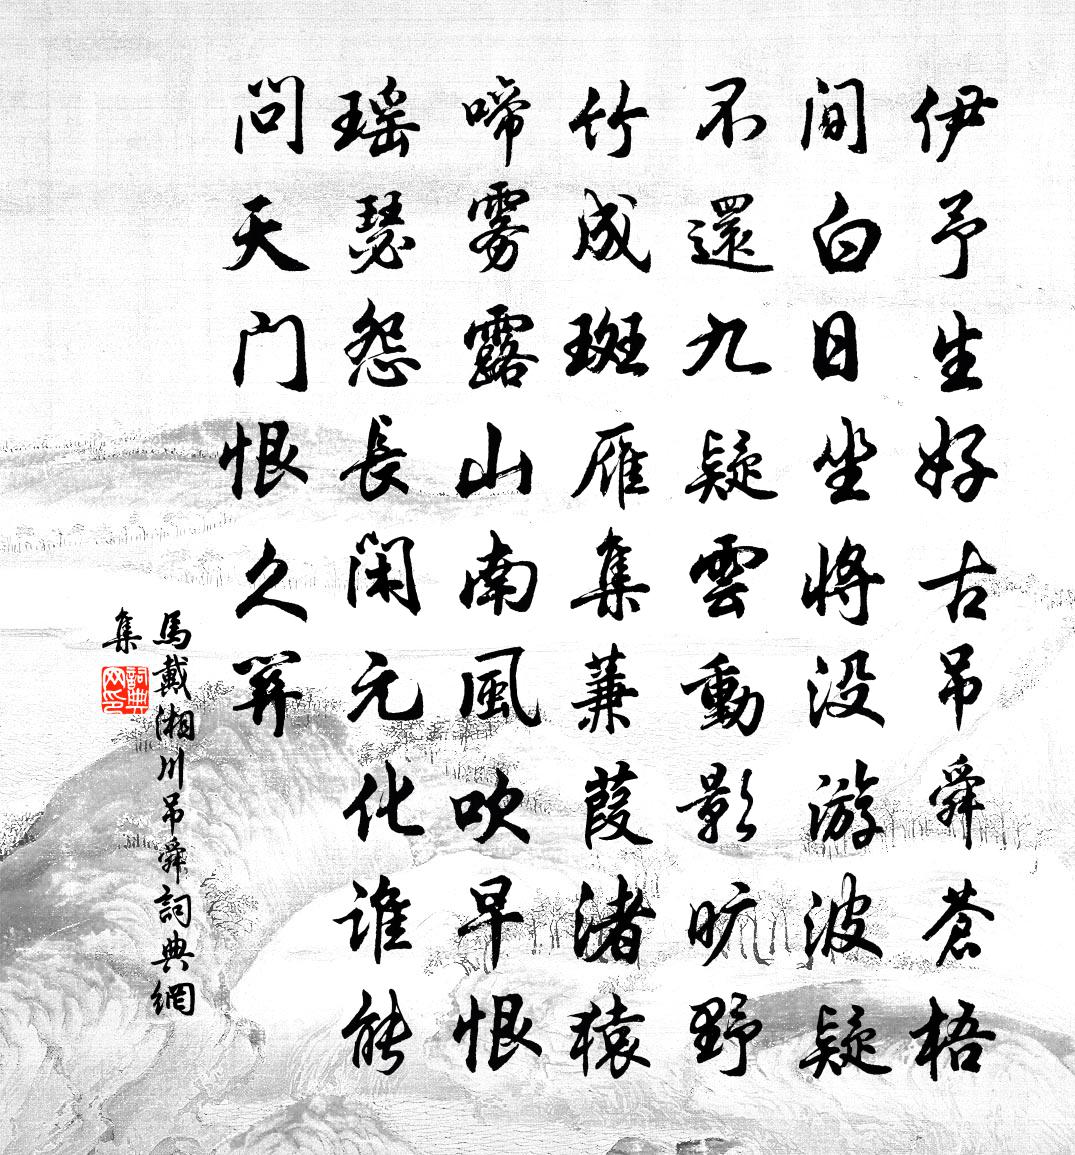 伊予生好古吊舜蒼梧
间白日坐将没游波疑
不還九疑雲動影旷野
竹成斑雁集蒹葭渚猿
啼雾露山南風吹早恨
瑶瑟怨長闲元化谁能
问天门恨久関
馬戴湘川吊舜詞典網
集
詞典
网印